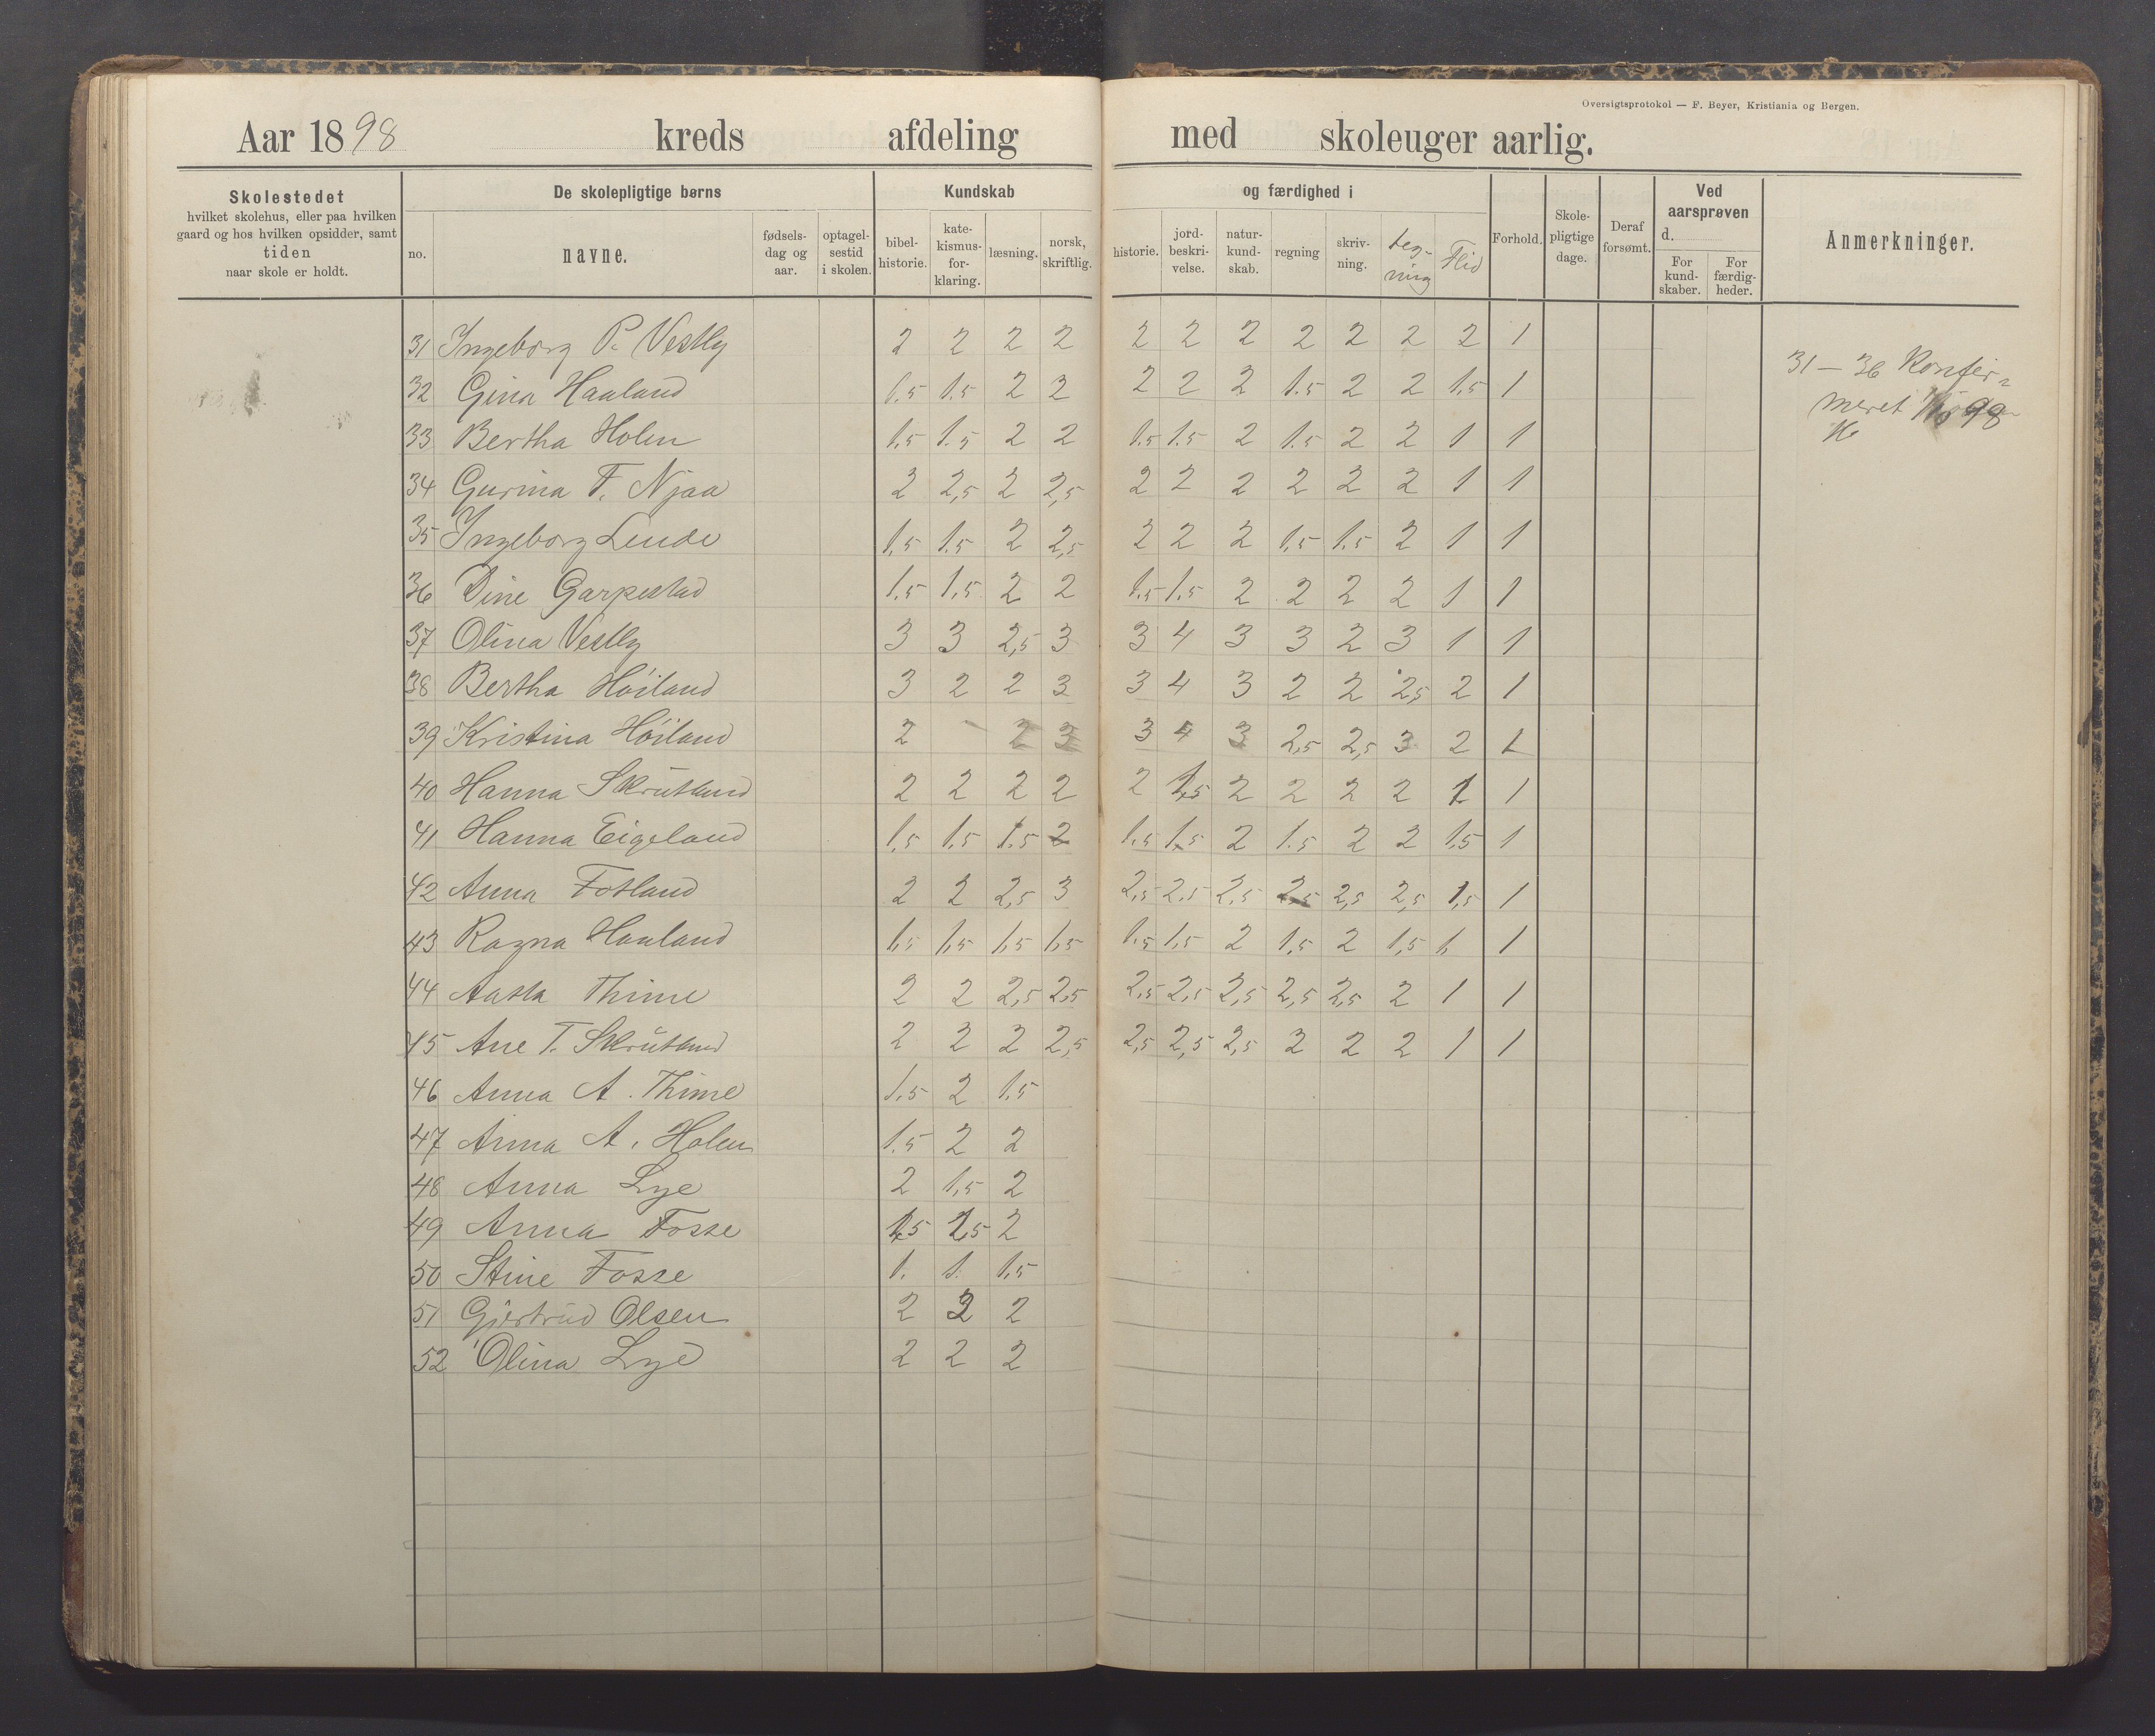 Oversigtsprotokol — F. Beyer, Kristiania og Bergen.
Aar 1898 kreds afdeling med skoleuger aarlig.
Skolestedet hvilket skolehus, eller paa hvilken gaard og hos hvilken opsidder, samt tiden naar skole er holdt.
De skolepligtige børns
no. navne. fødselsdag og aar. optagelsestid i skolen.
Kundskab og færdighed i
bibelhistorie. katekismusforklaring. læsning. norsk, skriftlig. historie. jordbeskrivelse. naturkundskab. regning skrivning. tegning Flid
Forhold. Skolepligtige dage. Deraf forsømt.
Ved aarsprøven d.
For kundskaber. For færdigheder.
Anmerkninger.
31 Ingeborg P. Vestly 2 2 2 2 2 2 2 2 2 2 2 1
32 Gina Haaland 1.5 1.5 2 2 2 2 2 1.5 2 2 1.5 1
33 Bertha Holen 1.5 1.5 2 2 1.5 1.5 2 1.5 2 2 1 1
34 Gurina T. Njaa 2 2,5 2 2,5 2 2 2 2 2 2 1 1
35 Ingeborg Lende 1,5 1.5 2 2,5 2 2 2 1,5 1.5 2 1 1
36 Dine Garpestad 1.5 1,5 2 2 1.5 1.5 2 2 2 2 1 1
37 Olina Vestly 3 3 2,5 3 3 4 3 3 2 3 1 1
38 Bertha Höiland 3 2 2 3 3 4 3 2 2 2,5 2 1
39 Kristina Höiland 2 2 3 3 4 3 2,5 2,5 3 2 1
40 Hanna Skrutland 2 2 2 2 2 1,5 2 2 2 2 1 1
41 Hanna Eigeland 1,5 1,5 1.5 2 1,5 1,5 2 1.5 2 2 1,5 1
42 Anna Fotland 2 2 2,5 3 2,5 2,5 2,5 2,5 2,5 2,5 1,5 1
43 Ragna Haaland 1,5 1,5 1,5 1,5 1,5 1,5 2 1,5 2 1,5 1, 1
44 Aasta Thime 2 2 2,5 2,5 2,5 2,5 2,5 2,5 2,5 2 1 1
45 Ane T. Skrutland 2 2 2 2,5 2,5 2,5 2,5 2 2 2 1 1
46 Anna A. Thime 1,5 2 1.5
47 Anna A. Holen 1.5 2 2
48 Anna Lye 2 1,5 2
49 Anna Fosse 1,5 1,5 2
50 Stine Fosse 1. 1. 1,5
51 Gjertrud Olsen 2 2 2
52 Olina Lye 2 2 2
31 – 36 Konfir=
meret 98